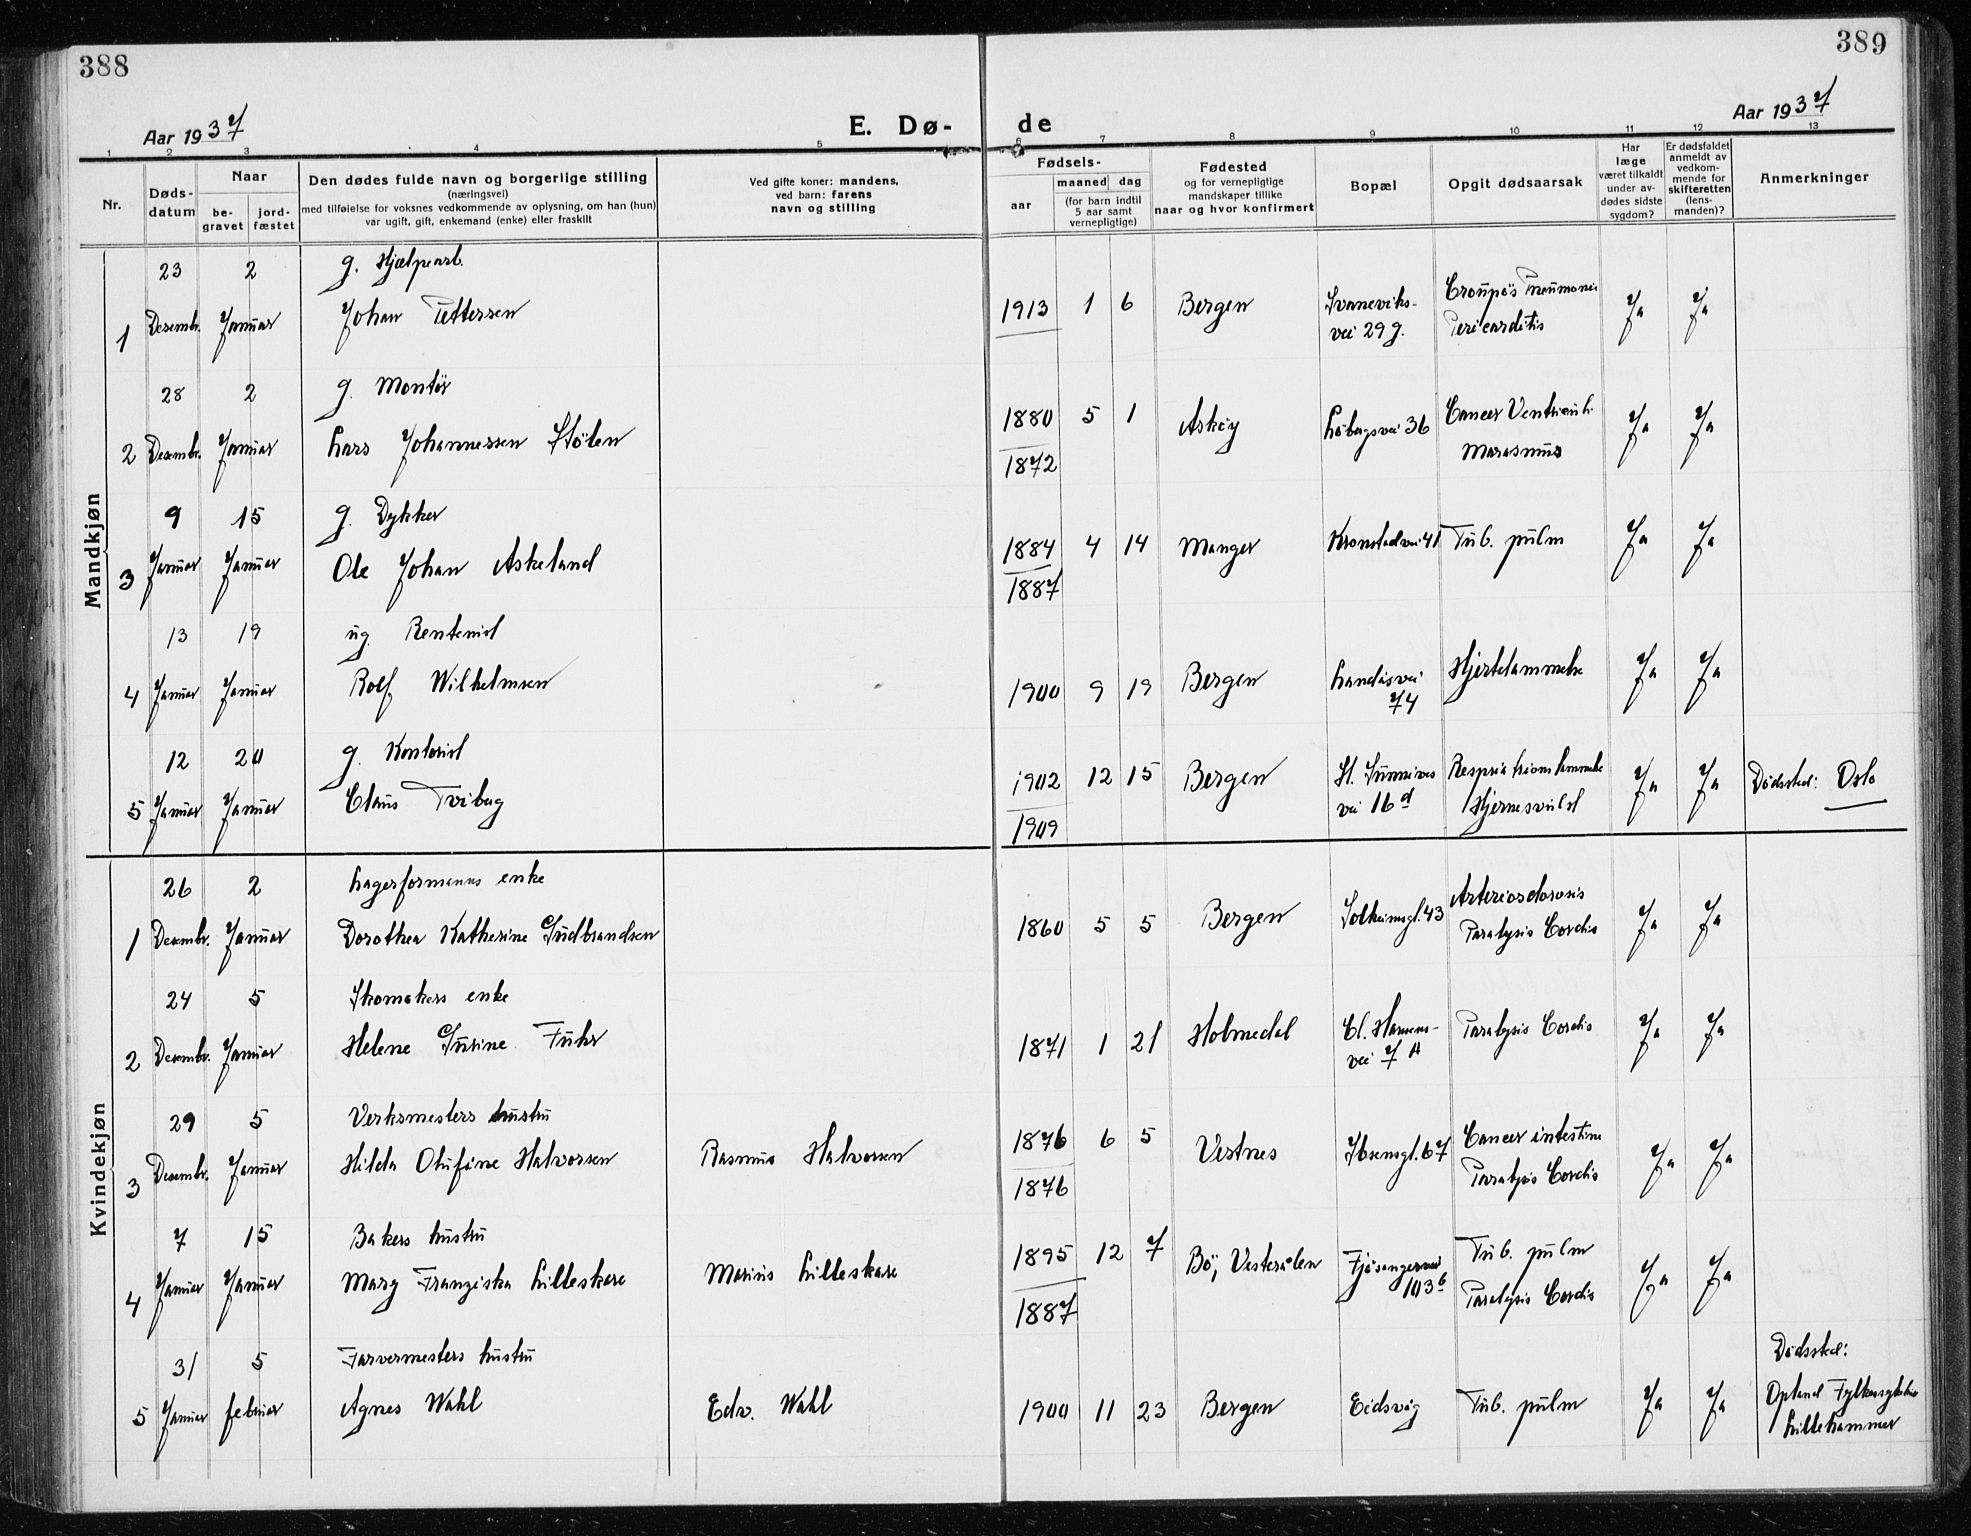 388
389
Aar 1937
E. Dø-
de
Aar 1937
1 2 3 4 5 6 7 8 9 10 11 12 13
Nr.
Døds-
datum
Naar
be-
gravet
jord-
fæstet
Den dødes fulde navn og borgerlige stilling
(næringsvei)
med tilføielse for voksnes vedkommende av oplysning, om han (hun)
var ugift, gift, enkemand (enke) eller fraskilt
Ved gifte koner: mandens,
ved barn: farens
navn og stilling
Fødsels-
aar
maaned dag
(for barn indtil
5 aar samt
vernepligtige)
Fødested
og for vernepligtige
mandskaper tillike
naar og hvor konfirmert
Bopæl
Opgit dødsaarsak
Har
læge
været tilkaldt
under av-
dødes sidste
sygdom?
Er dødsfaldet
anmeldt av
vedkom-
mende for
skifteretten
(lens-
manden)?
Anmerkninger
Mandkjøn
23 2 g. Hjælpearb.
1 Desembr. Januar Johan Pettersen 1913 1 6 Bergen Svaneviks-
vei 29 g. Croupøs Pneumonie
Pericarditis Ja Ja
28 2 g. Montør
2 Desembr. Januar Lars Johannessen Stølen 1880 5 1 Askøy Løbergsvei 36 Cancer Ventriculi
1872 Marasmus Ja Ja
9 15 g. Dykker
3 Januar Januar Ole Johan Askeland 1884 4 14 Manger Kronstadvei 41 Tub. pulm Ja Ja
1887
13 19 ug. Rentenist
4 Januar Januar Rolf Wilhelmsen 1900 9 19 Bergen Landåsvei
74 Hjertelammelse Ja Ja
12 20 g. Kontorist
5 Januar Januar Claus Tviberg 1902 12 15 Bergen St. Sunnives
vei 16 d Respirationslammelse
1909 Hjernesvulst Ja Ja Dødssted: Oslo
Kvindekjøn
26 2 Lagerformanns enke
1 Desembr. Januar Dorothea Katherine Gudbrandsen 1860 5 5 Bergen Solheimsgt. 43 Arteriosclerosis
Paralysis Cordis Ja Ja
24 5 Skomakers enke
2 Desembr. Januar Helene Gurine Fuhr 1871 1 21 Holmedal Cl. Hansens-
vei 7 A Paralysis Cordis Ja Ja
29 5 Verksmesters hustru
3 Desembr. Januar Hilda Olufine Halvorsen Rasmus Halvorsen 1876 6 5 Vestnes Ibsensgt. 67 Cancer intestine
1876 Paralysis Cordis Ja Ja
7 15 Bakers hustru
4 Januar Januar Mary Franziska Lilleskare Marius Lilleskare 1895 12 7 Bø, Vesterålen Fjøsangervei
103 b Tub. pulm
1887 Paralysis Cordis Ja Ja
31 5 Farvermesters hustru
5 Januar februar Agnes Wahl Edv. Wahl 1900 11 23 Bergen Eidsvåg Tub. pulm Ja Ja Dødssted:
Opland
Lillehammer